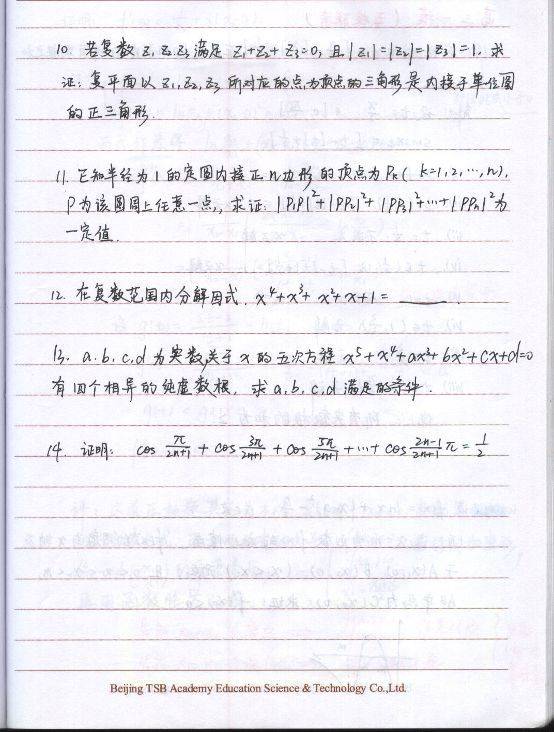 10. 若复数 z₁.z₂.z₃满足 z₁+z₂+z₃=0, 且|z₁|=|z₂|=|z₃|=1. 求
证: 复平面以 z₁,z₂,z₃ 所对应的点为顶点的三角形是内接于单位圆
的正三角形.
11. 已知半径为1的定圆内接正n边形的顶点为Pₖ( k=1,2,…,n),
P为该圆周上任意一点,, 求证: |PP₁|²+|PP₂|²+|PP₃|²+…+|PPₙ|²为
一定值.
12. 在复数范围内分解因式. x⁴+x³+x²+x+1= ______
13. a.b.c.d 为实数,关于 x 的五次方程 x⁵+x⁴+ax³+bx²+cx+d=0
有四个相异的纯虚数根, 求 a.b.c.d 满足的条件.
14. 证明: cos π/2n+1 + cos 3π/2n+1 + cos 5π/2n+1 + … + cos 2n-1/2n+1 π = 1/2
Beijing TSB Academy Education Science & Technology Co.,Ltd.